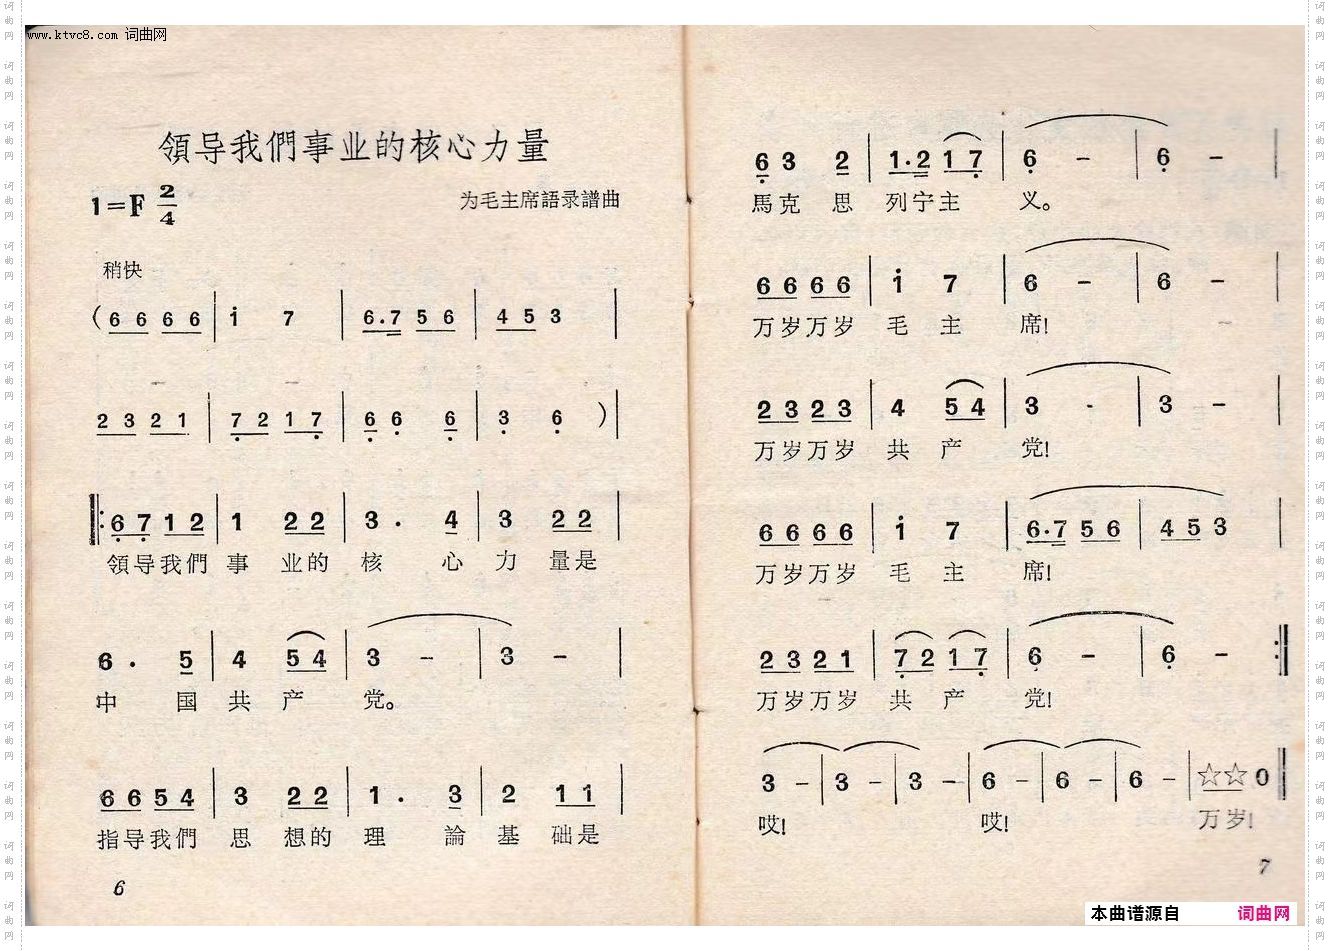 www.ktvc8.com 词曲网
領导我們事业的核心力量
1=F 2/4
为毛主席語录譜曲
稍快
(6 6 6 6 | i 7 | 6.7 5 6 | 4 5 3 |
2 3 2 1 | 7 2 1 7 | 6 6 6 | 3 6 )|
‖:6 7 1 2 | 1 2 2 | 3. 4 | 3 2 2 |
領导我們 事 业的 核 心 力 量是
6. 5 | 4 5 4 | 3 - | 3 - |
中 国 共 产 党。
6 6 5 4 | 3 2 2 | 1. 3 | 2 1 1 |
指导我們 思 想的 理 論 基 础是
6
6 3 2 | 1.2 1 7 | 6 - | 6 - |
馬克 思 列宁主 义。
6 6 6 6 | i 7 | 6 - | 6 - |
万岁万岁 毛 主 席!
2 3 2 3 | 4 5 4 | 3 - | 3 - |
万岁万岁 共 产 党!
6 6 6 6 | i 7 | 6.7 5 6 | 4 5 3 |
万岁万岁 毛 主 席!
2 3 2 1 | 7 2 1 7 | 6 - | 6 - :‖
万岁万岁 共 产 党!
3 - | 3 - | 3 - | 6 - | 6 - | 6 - | ☆☆ 0 ‖
哎! 哎! 万岁!
7
本曲谱源自 词曲网